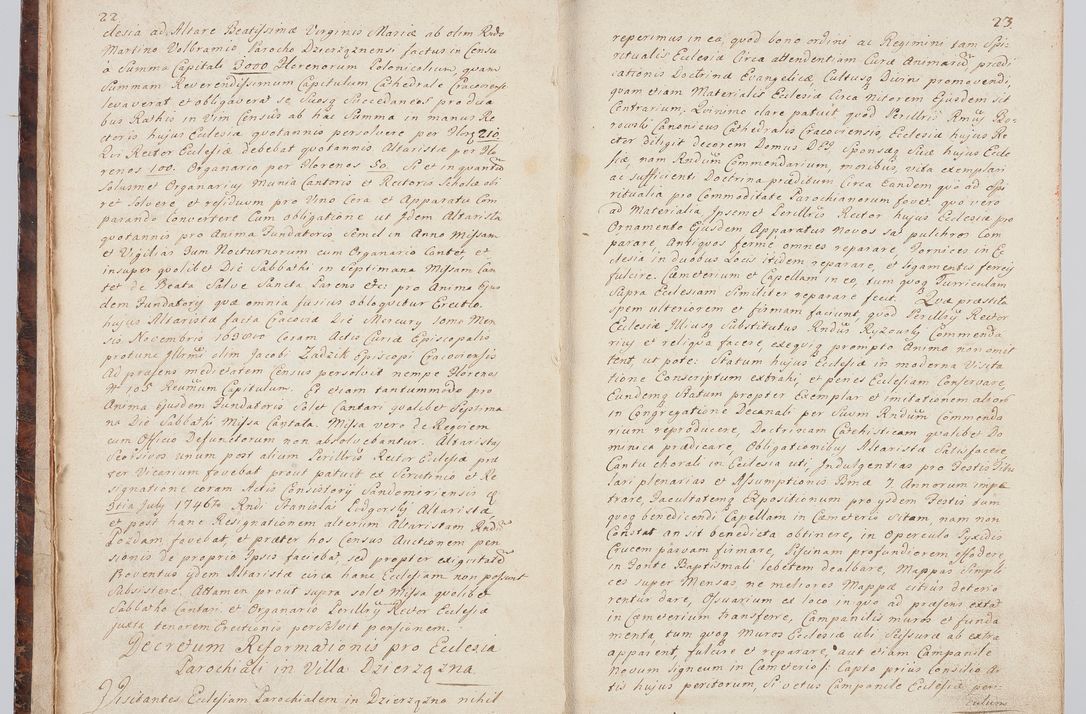 22
clesia ad Altare Beatissimæ Virginis Mariæ ab olim Rndo
Martino Volbramio Parocho Dzierzqznensi factus in Censu
à Summa Capitali 3000 Florenorum Polonicalium quam
Summam Reverendissimum Capitulum Cathedrale Cracoviense
levaverat et obligaverat se suosq Succedaneos pro dua
bus Rathis in Vim Census ab hac Summa in manus Re
ctoris hujus Ecclesiæ quotannis persolvere per Flor 210
Qui Rector Ecclesiæ debebat quotannis Altaristæ per Flo
renos 100. Organario per Florenos 50. Si et in quantum
Solus met Organarius Munia Cantoris et Rectoris Scholæ obi
ret Solvere et residuum pro Vino Cera et Apparatu Com
parando Convertere Cum obligatione ut Idem Altarista
quotannis pro Anima Fundatoris Semel in Anno Missam
et Vigilias Trium Nocturnorum cum Organario Cantet et
insuper quolibet Die Sabbathi in Septimana Missam Can
tet de Beata Salve Sancta Parens etc: pro Anima Ejus
dem Fundatoris quæ omnia fusius obloquitur Erectio
hujus Altaristæ facta Cracoviæ Die Mercurij 10ma Men
sis Novembris coram Actis Curiæ Episcopalis
protunc Illrmi olim Jacobi Zadzik Episcopi Cracoviensis
Ad præsens medietatem Census persolvit nempe Florenos
No 105 Rerumum Capitulum. Et etiam tantummodo pro
Anima Ejusdem Fundatoris Solet Cantari qualibet Septima
na Die Sabbathi Missa Cantata. Missa vero de Requiem
cum Officio Defunctorum non absolvebantur. Altaristas
Seorsivos unum post alium Perillris Rector Ecclesiæ præ
ter Vicarium fovebat prout patuit ex Scrutinio et Re
signatione coram Actis Consistorij Sandomiriensis
3tia July 1746to Rndi Stanislai Podgorski Altaristæ
et post hanc Resignationem alterum Altaristam Rndum
Pozdam fovebat, et præter hos Census Auctionem pen
sionis de proprio Ipsis faciebat, sed propter exiguitatem
Proventus ijdem Altaristæ circa hanc Ecclesiam non possunt
Subsistere. Attamen prout supra solet Missa quolibet
Sabbatho Cantari et Organario Perillris Rector Ecclesiæ
juxta tenorem Erectionis persolvit pensionem.
Decretum Reformationis pro Ecclesia
Parochiali in Villa Dzierzqzna
Visitantes Ecclesiam Parochialem in Dzierzqzno nihil
23
reperimus in ea, quod bono ordini ac Regimini tam Spi
ritualis Ecclesiæ Circa attendentiam Curæ Animarum prædi
cationis Doctrinæ Evangelicæ, Cultusq Divini promovendi,
quam etiam Materialis Ecclesiæ Circa Nitorem Ejusdem sit
Contrarium; Quinimo clare patuit quod Perillris Rmus Bo
rowski Canonicus Cathedralis Cracoviensis, Ecclesiæ hujus Re
ctor diligit decorem Domus DEI Sponsæq Suæ hujus Eccle
siæ, nam Rndum Commendarium, moribus, vita exemplari
ac sufficienti Doctrina præditum Circa Eandem quò ad Spi
ritualia pro Commoditate Parochianorum fovet quò vero
ad Materialia Ipsemet Perillris Rector hujus Ecclesiæ pro
Ornamento Ejusdem Apparatus Novos sat pulchros Com
parare, Antiquos fermè omnes reparare, Fornices in E
clesia in duobus Locis itidem reparare, et ligamentis ferreis
fulcire. Cæmeterium et Capellam in eo, tum quoq Turriculam
Supra Ecclesiam Similiter reparare fecit. Quæ præstita
spem ulteriorem et firmam faciunt, quòd Perillris Rector
Ecclesiæ Illiusq Substitutus Rndus Ryzowski Commenda
rius et reliqua facere, exequiq prompto Animo non omit
tent, ut pote: Statum hujus Ecclesiæ in moderna Visita
tione Conscriptum extrahi, et penes Ecclesiam Conservare,
Eundemq Statum propter Exemplar et imitationem aliorum
in Congregatione Decanali per Suum Rndum Commenda
rium reproducere, Doctrinam Catechisticam qualibet Do
minica prædicare, Obligationibus Altaristæ Satisfacere,
Cantu chorali in Ecclesia uti, Indulgentias pro Festis Titu
lari plenarias et Assumptionis Bmæ 7 Annorum impe
trare, Facultatem Expositionum pro ijsdem Festis tum
quoq benedicendi Capellam in Cæmeterio sitam, nam non
Constat an sit benedicta obtinere, in Operculo Pyxidis
Crucem parvam firmare, Piscinam profundiorem effodere,
in Fonte Baptismali lebetem dealbare, Mappas Simpli
ces super Mensas ne meliores Mappæ citius deterio
rentur dare, Ossuarium ex loco in quo ad præsens extat
in Cæmeterium transferre, Campanilis muros et funda
menta, tum quoq Muros Ecclesiæ ubi Scissuræ ab extra
apparent, fulcire et reparare, aut etiam Campanile
novum ligneum in Cæmeterio /: Capto prius Consilio Ar
tis hujus peritorum, Si vetus Campanile Ecclesiæ peri
culum